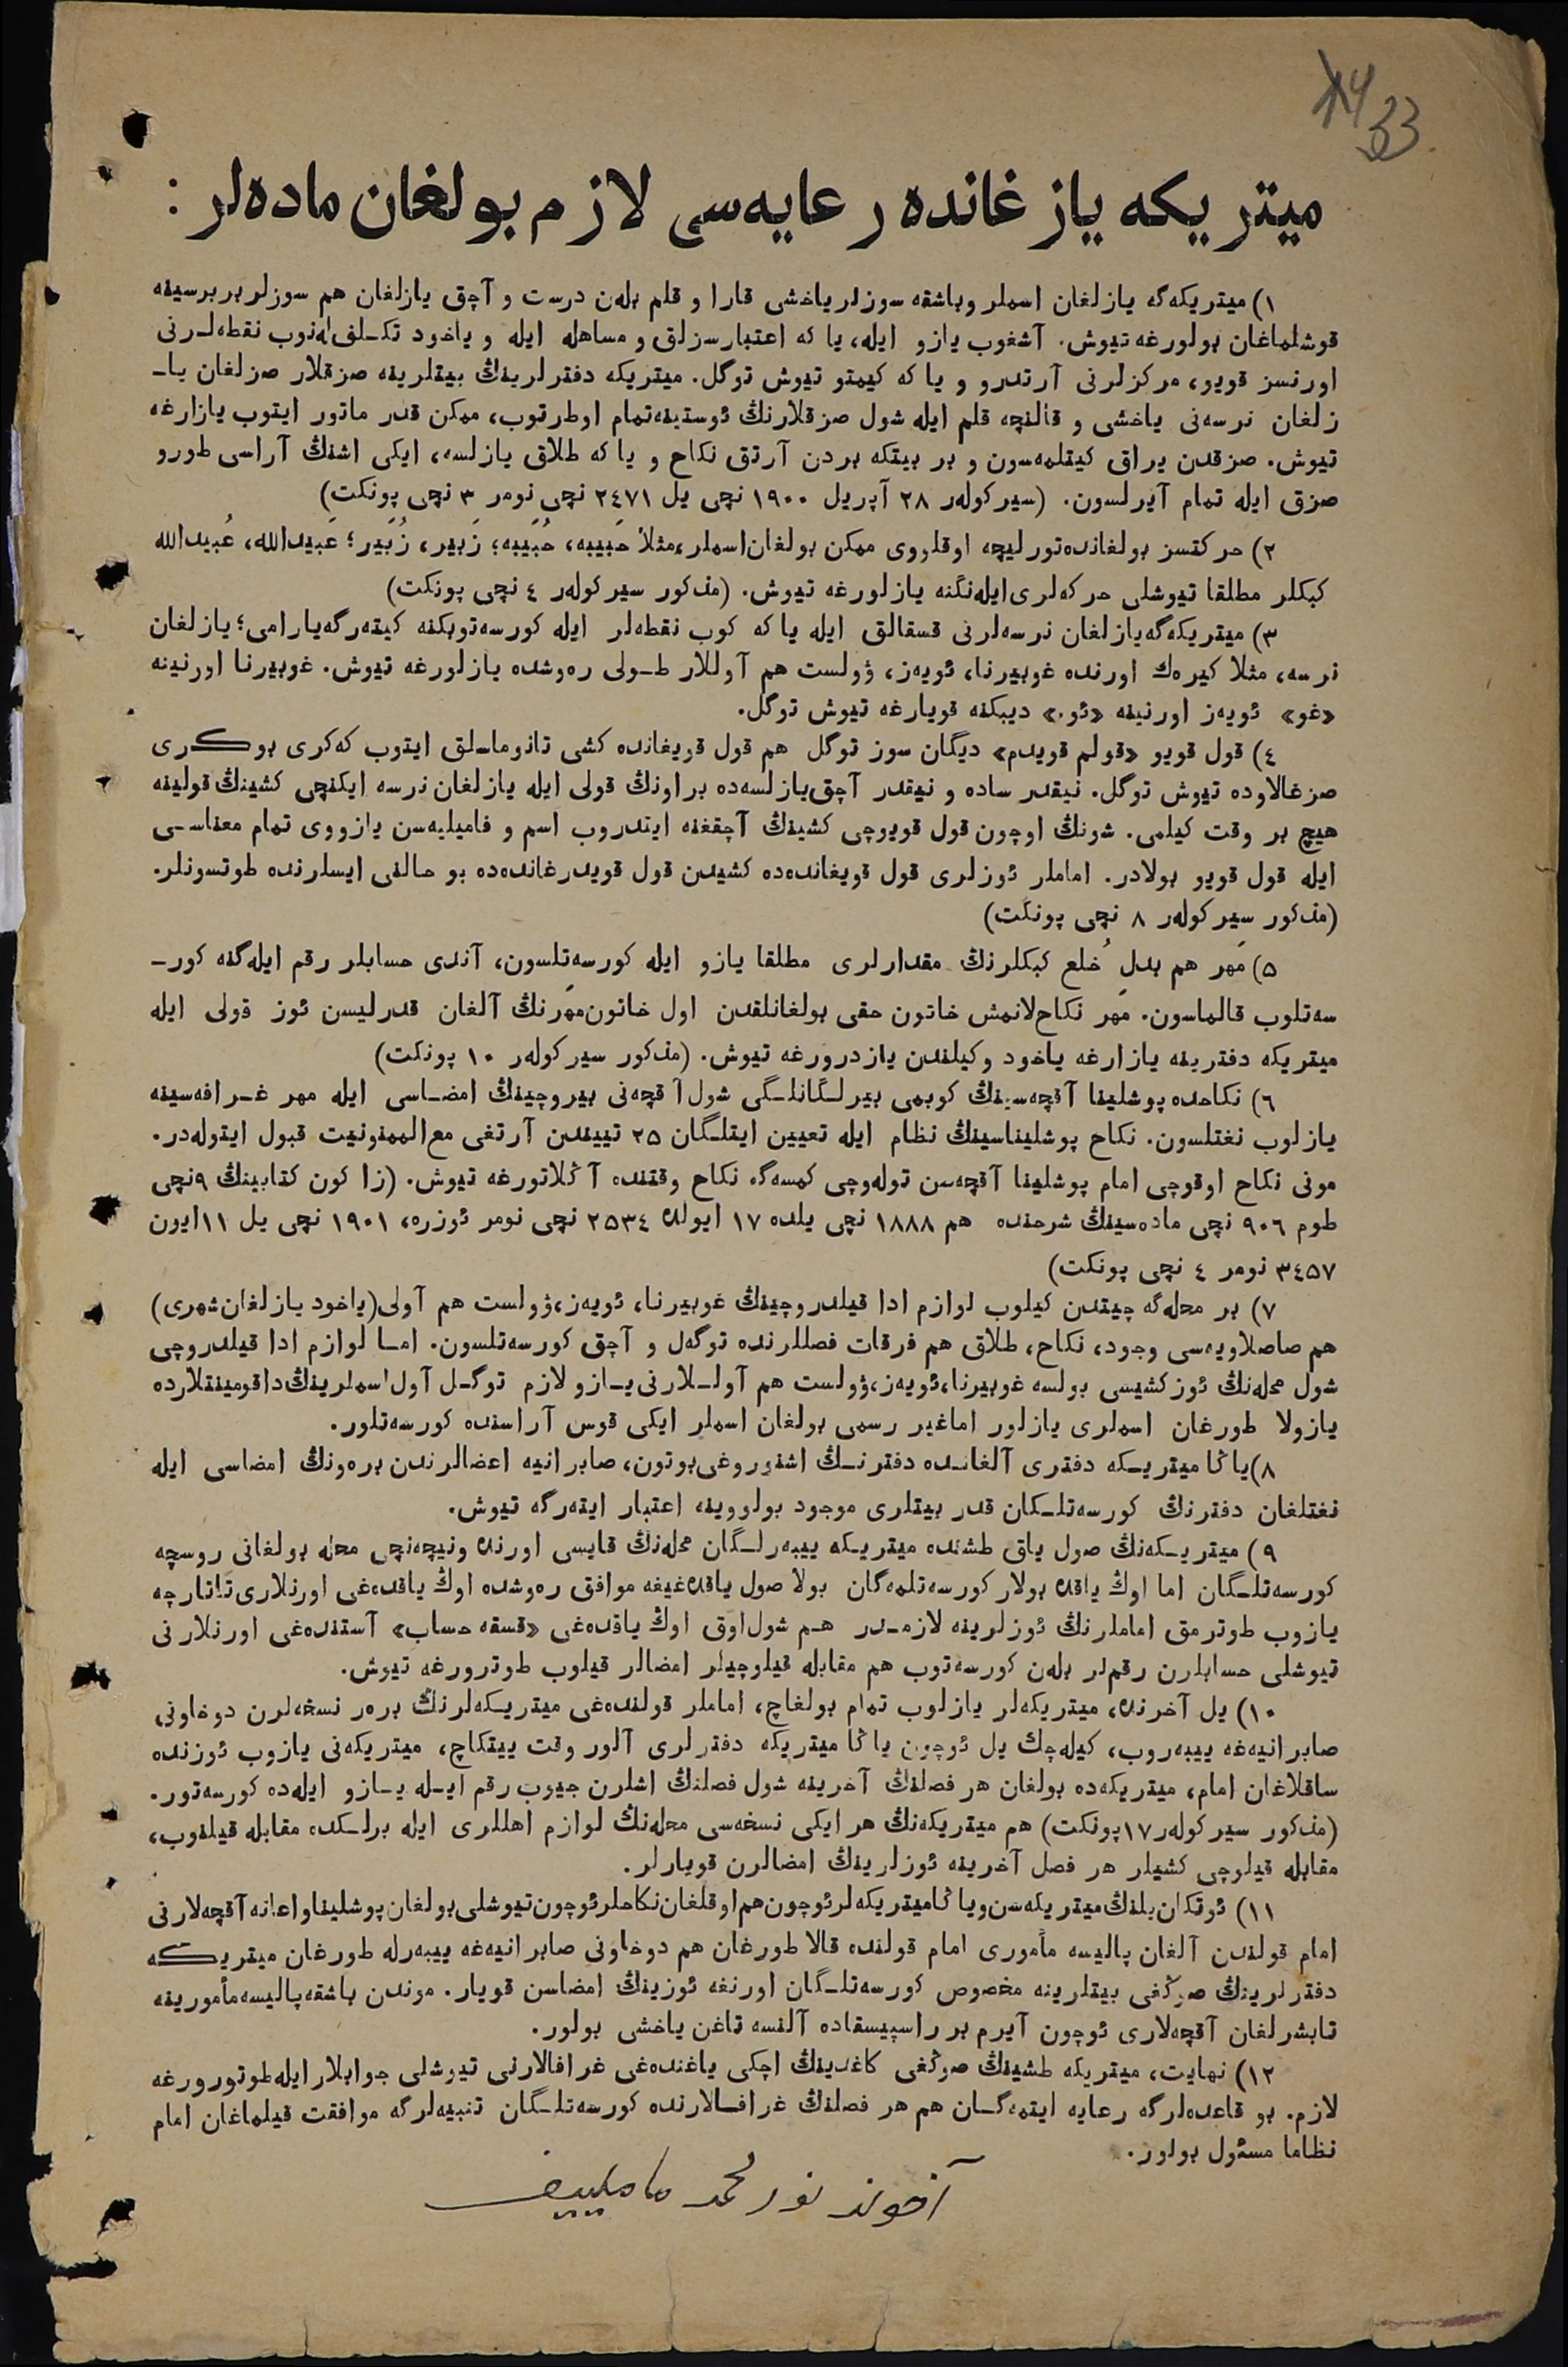 33
ميتريكه يازغانده رعايه‌سى لازم بولغان ماده‌لر :
١) ميتريكه‌گه يازلغان اسملر وباشقه سوزلر ياخشى قارا و قلم بلەن درست و آچق يازلغان هم سوزلر بربرسينه
قوشلماغان بولورغه تيوش. آشغوب يازو ايله، يا كه اعتبارسزلق و مساهله ايله و ياخود تكـلف له‌نوب نقطه‌لـرنى
اورنسز قويو، مركزلرنى آرتدرو و يا كه كيمتو تيوش توگل. ميتريكه دفترلرينڭ بيتلرينه صزقلار صزلغان يا-
زلغان نرسه‌نى ياخشى و قالنچه قلم ايله شول صزقلارنڭ ئوستينه‌تمام اوطرتوب، ممكن قدر ماتور ايتوب يازارغه
تيوش. صزقدن يراق كيتلمه‌سون و بر بيتكه بردن آرتق نكاح و يا كه طلاق يازلسه، ايكى اشنڭ آراسى طورو
صزق ايله تمام آيرلسون. (سيركولەر ٢٨ آپريل ١٩٠٠ نچى يل ٢٤٧١ نچى نومر ٣ نچى پونكت)
٢) حركتسز بولغانده‌تورليچه اوقلووى ممكن بولغان‌اسملر،مثلاً حَبيبه، حُبَيبه؛ زَبير، زُبَير؛ عَبيدالله، عُبيدالله
كبكلر مطلقا تيوشلى حركه‌لرى‌ايله‌نگنه يازلورغه تيوش. (مذكور سيركولەر ٤ نچى پونكت)
٣) ميتريكه‌گه‌يازلغان نرسه‌لرنى قسقالق ايله يا كه كوب نقطه‌لر ايله كورسه‌توبكنه كيته‌رگه‌يارامى؛ يازلغان
نرسه، مثلا كيره‌ك اورنده غوبيرنا، ئويه‌ز، ۋولست هم آوللار طـولى ره‌وشده يازلورغه تيوش. غوبيرنا اورنينه
«غو» ئويه‌ز اورنينه «ئو.» ديبكنه قويارغه تيوش توگل.
٤) قول قويو «قولم قويدم» ديگان سوز توگل هم قول قويغانده كشى تانوماـلق ايتوب كه‌كرى بوكرى
صزغالاوده تيوش توگل. نيقدر ساده و نيقدر آچق‌يازلسه‌ده براونڭ قولى ايله يازلغان نرسه ايكنچى كشينڭ قولينه
هيچ بر وقت كيلمى. شونڭ اوچون قول قويوچى كشينڭ آچقغنه ايتدروب اسم و فاميليه‌سن يازووى تمام معناسـى
ايله قول قويو بولادر. اماملر ئوزلرى قول قويغانده‌ده كشيدن قول قويدرغانده‌ده بو حالنى ايسلرنده طوتسونلر.
(مذكور سيركولەر ٨ نچى پونكت)
٥) مَهر هم بدلِ خُلع كبكلرنڭ مقدارلرى مطلقا يازو ايله كورسه‌تلسون، آندى حسابلر رقم ايله‌گنه كور-
سه‌تلوب قالماسون. مَهر نكاح‌لانمش خاتون حقى بولغانلقدن اول خاتون‌مهرنڭ آلغان قدرليسن ئوز قولى ايله
ميتريكه دفترينه يازارغه ياخود وكيلندن يازدرورغه تيوش. (مذكور سيركولەر ١٠ پونكت)
٦) نكاحده پوشلينا آقچه‌سينڭ كوبمى بيرلـگانلـگى شول‌آقچه‌نى بيروچينڭ امضـاسى ايله مهر غـرافه‌سينه
يازلوب نغتلسون. نكاح پوشليناسينڭ نظام ايله تعيين ايتلـگان ٢٥ تييندن آرتغى مع‌الممنونيت قبول ايتوله‌در.
مونى نكاح اوقوچى امام پوشلينا آقچه‌سن تولەوچى كمسه‌گه نكاح وقتنده آڭلاتورغه تيوش. (زاكون كتابينڭ ٩نچى
طوم ٩٠٦ نچى ماده‌سينڭ شرحنده هم ١٨٨٨ نچى يلده ١٧ ايولده ٢٥٣٤ نچى نومر ئوزره، ١٩٠١ نچى يل ١١ ايون
٣٤٥٧ نومر ٤ نچى پونكت)
٧) بر محله‌گه چيتدن كيلوب لوازم ادا قيلدروچينڭ غوبيرنا، ئويه‌ز،ۋولست هم آولى(ياخود يازلغان‌شهرى)
هم صاصلاويه‌سى وجود، نكاح، طلاق هم فرقات فصللرنده توگه‌ل و آچق كورسه‌تلسون. امـا لوازم ادا قيلدروچى
شول محله‌نڭ ئوزكشيسى بولسه غوبيرنا،ئويه‌ز،ۋولست هم آولـلارنى يـازو لازم توگـل آول‌اسملرينڭ‌داقومينتلارده
يازولا طورغان اسملرى يازلور اماغير رسمى بولغان اسملر ايكى قوس آراسنده كورسه‌تلور.
٨)ياڭا ميتريـكه دفترى آلغانـده دفترنـڭ اشنوروغى‌بوتون، صابرانيه اعضالرندن بره‌ونڭ امضاسى ايله
نغتلغان دفترنڭ كورسه‌تلـكان قدر بيتلرى موجود بولووينه اعتبار ايته‌رگه تيوش.
٩) ميتريـكه‌نڭ صول ياق طشنده ميتريـكه ييبه‌رلـگان محله‌نڭ قايسى اورنده ونيچه‌نچى محله بولغانى روسچه
كورسه‌تلـگان اما اوڭ ياقده بولار كورسه‌تلمه‌گان بولا صول ياقده‌غيغه موافق ره‌وشده اوڭ ياقده‌غى اورنلارى‌تاتارچه
يازوب طوترمق اماملرنڭ ئوزلرينه لازمـدر هـم شول‌اوق اوڭ ياقده‌غى «قسقه حساب» آستنده‌غى اورنلارنى
تيوشلى حسابلرن رقم‌لر بلەن كورسه‌توب هم مقابله قيلوچيلر امضالر قيلوب طوترورغه تيوش.
١٠) يل آخرنده، ميتريكه‌لر يازلوب تمام بولغاچ، اماملر قولنده‌غى ميتريـكه‌لرنڭ بره‌ر نسخه‌لرن دوخاونى
صابرانيه‌غه ييبه‌روب، كيله‌چك يل ئوچون ياڭا ميتريكه دفترلرى آلور وقت ييتكاچ، ميتريكه‌نى يازوب ئوزنده
ساقلاغان امام، ميتريكه‌ده بولغان هر فصلنڭ آخرينه شول فصلنڭ اشلرن جيوب رقم ايـله يـازو ايله‌ده كورسه‌تور.
(مذكور سيركولەر١٧پونكت) هم ميتريكه‌نڭ هر ايكى نسخه‌سى محله‌نڭ لوازم اهللرى ايله برلـكده مقابله قيلنوب،
مقابله قيلوچى كشيلر هر فصل آخرينه ئوزلرينڭ امضالرن قويارلر.
١١) ئوتكان‌يلنڭ‌ميتريكه‌سن‌وياڭاميتريكه‌لرئوچون‌هم‌اوقلغان‌نكاحلرئوچون‌تيوشلى‌بولغان‌پوشليناواعانه‌آقچه‌لارنى
امام قولندن آلغان پاليسه مأمورى امام قولنده قالا طورغان هم دوخاونى صابرانيه‌غه ييبه‌رله طورغان ميتريـكه
دفترلرينڭ صوڭغى بيتلرينه مخصوص كورسه‌تلـگان اورنغه ئوزينڭ امضاسن قويار. موندن باشقه‌پاليسه‌مأمورينه
تابشرلغان آقچه‌لارى ئوچون آيرم بر راسپيسقاده آلنسه تاغن ياخشى بولور.
١٢) نهايت، ميتريكه طشينڭ صوڭغى كاغدينڭ اچكى ياغنده‌غى غرافالارنى تيوشلى جوابلارايله‌طوتورورغه
لازم. بو قاعده‌لرگه رعايه ايتمه‌گـان هم هر فصلنڭ غرافـالارنده كورسه‌تلـگان تنبيه‌لرگه موافقت قيلماغان امام
نظاما مسئول بولور.
آخوند نورمحمد ماملييف